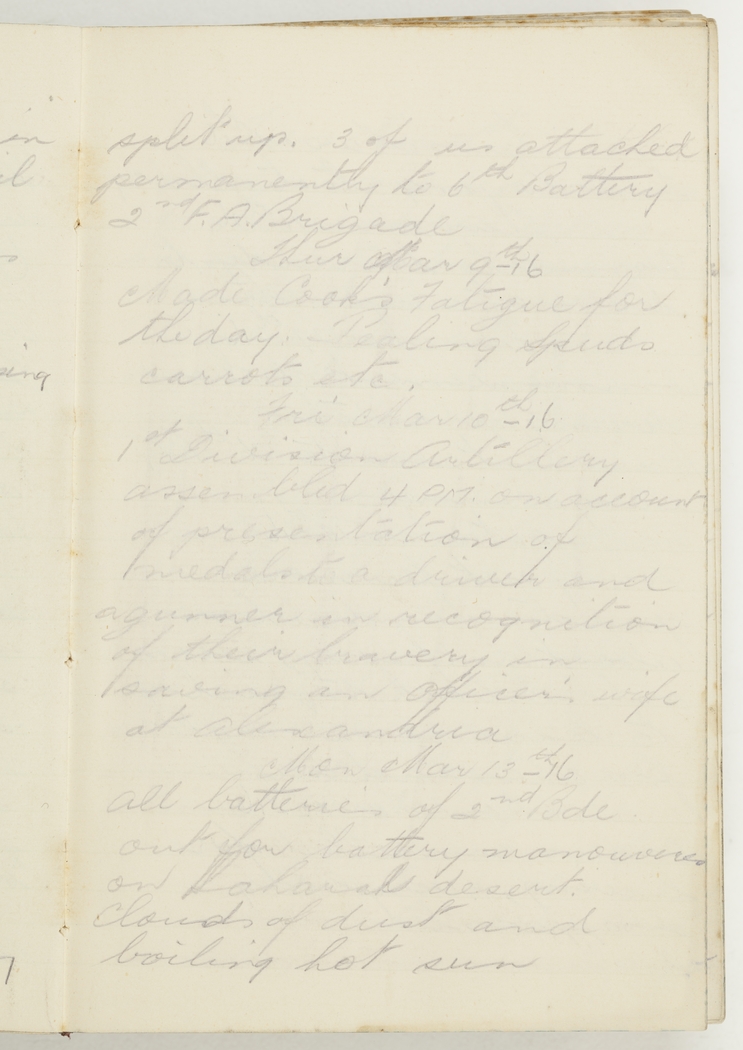 split up. 3 of us attached
permanently to 6th Battery
2nd F.A. Brigade
Thur Mar 9th-16
Made Cook's Fatigue for
the day. Pealing spuds
carrots etc.
Fri Mar 10th-16
1st Division Artillery
assembled 4 PM. on account
of presentation of
medals to a driver and
a gunner in recognition
of their bravery in
saving an officer's wife
at Alexandria
Mon Mar 13th-16
All batteries of 2nd Bde
out for battery manouvers
on Saharah desert.
Clouds of dust and
boiling hot sun